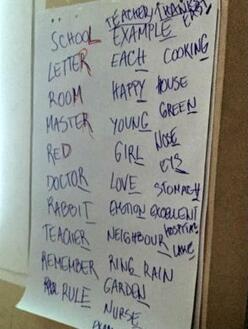 TEACHER/TRAINER
EASY
SCHOOL EXAMPLE
LETTER EACH COOKING
ROOM HAPPY HOUSE
MASTER YOUNG GREEN
RED GIRL NOSE
DOCTOR LOVE STOMACH
RABBIT EMOTION EXCELLENT
TEACHER NEIGHBOUR HOSPITAL
LAKE
REMEMBER RING RAIN
RULE GARDEN
NURSE